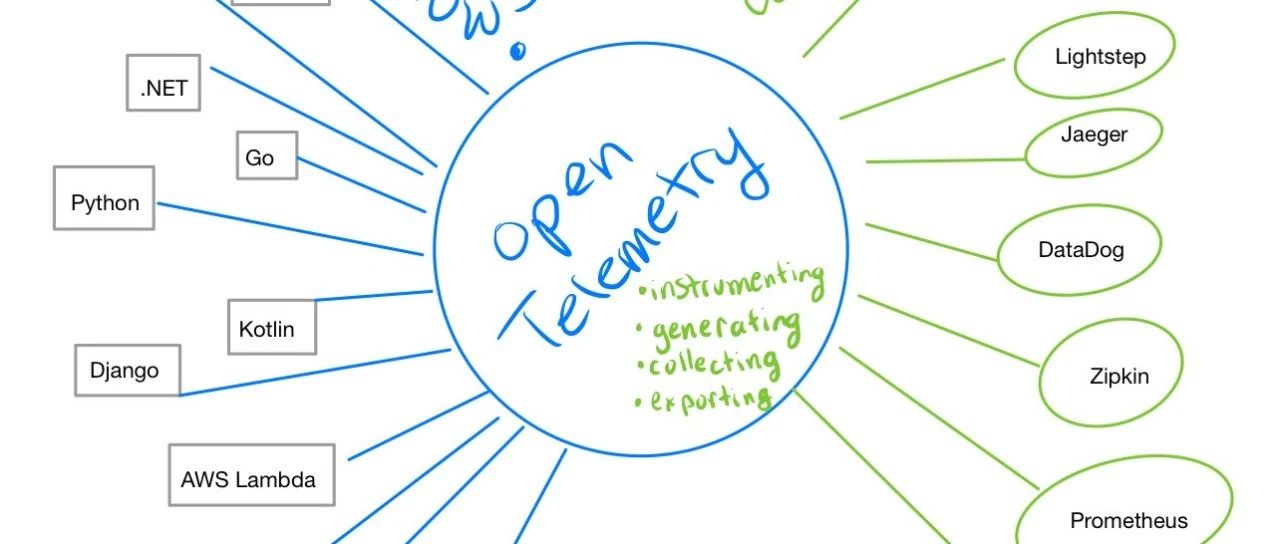 .NET
Go
Python
Kotlin
Django
AWS Lambda
Open
Telemetry
•instrumenting
•generating
•collecting
•exporting
Lightstep
Jaeger
DataDog
Zipkin
Prometheus